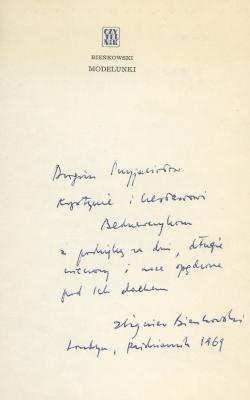 CZY
TEL
NIK
BIEŃKOWSKI
MODELUNKI
Drogim Przyjaciołom
Krystynie i Czesławowi
Bednarczykom
z podzięką za dni, długie
wieczory i noce spędzone
pod Ich dachem
Zbigniew Bieńkowski
Londyn, październik 1969